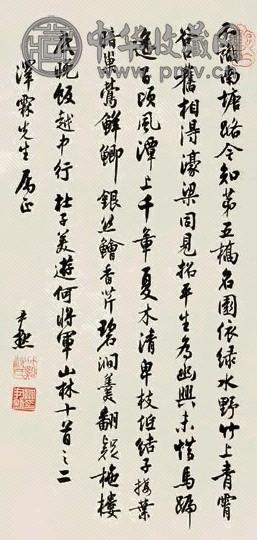 中华收藏网
不識南塘路今知第五橋名園依綠水野竹上青霄
谷口舊相得濠梁同見招平生為幽興未惜馬蹄
遙百頃風潭上千章夏木清卑枝低結子接葉
暗巢鶯鮮鯽銀絲鱠香芹碧澗羹翻疑柂樓
底晚飯越中行 杜子美遊何將軍山林十首之二
澤霖先生屬正
尹默